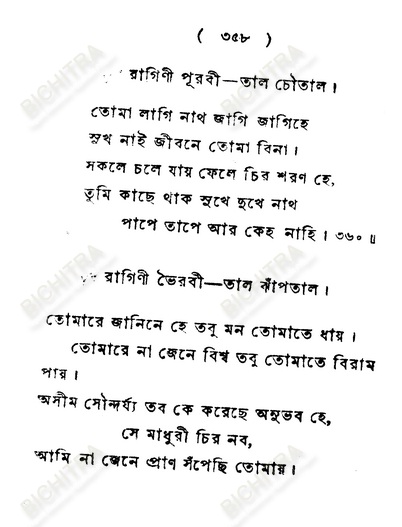 ( ৩৫৮ )
রাগিণী পূরবী—তাল চৌতাল।
তোমা লাগি নাথ জাগি জাগিহে
সুখ নাই জীবনে তোমা বিনা।
সকলে চলে যায় ফেলে চির শরণ হে,
তুমি কাছে থাক সুখে দুখে নাথ
পাপে তাপে আর কেহ নাহি। ৩৬০॥
রাগিণী ভৈরবী—তাল ঝাঁপতাল।
তোমারে জানিনে হে তবু মন তোমাতে ধায়।
তোমারে না জেনে বিশ্ব তবু তোমাতে বিরাম
পায়।
অসীম সৌন্দর্য্য তব কে করেছে অনুভব হে,
সে মাধুরী চির নব,
আমি না জেনে প্রাণ সঁপেছি তোমায়।
BICHITRA
BICHITRA
BICHITRA
BICHITRA
BICHITRA
BICHITRA